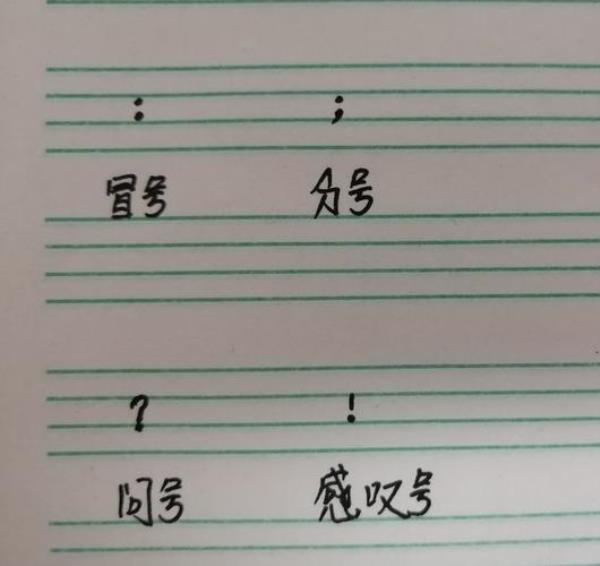 : ;
冒号 分号
? !
问号 感叹号